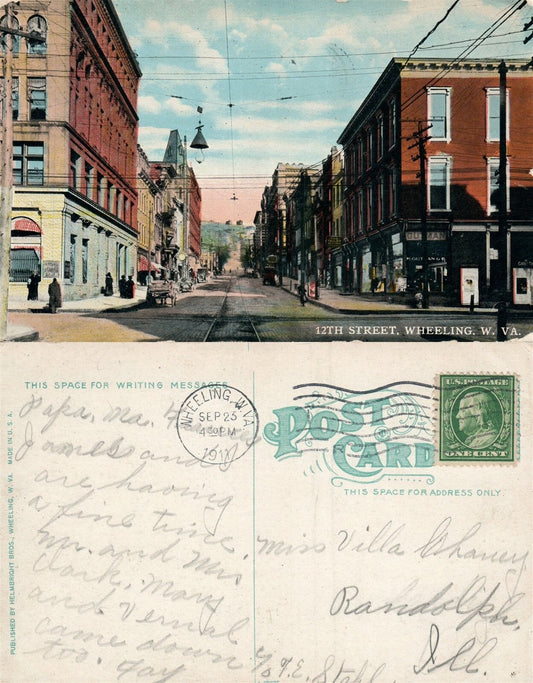 12TH STREET, WHEELING, W. VA.
THIS SPACE FOR WRITING MESSAGES
POST CARD
THIS SPACE FOR ADDRESS ONLY.
PUBLISHED BY HELMBRIGHT BROS., WHEELING, W. VA. MADE IN U.S.A.
WHEELING, W.VA.
SEP 23
PM
U.S. POSTAGE
ONE CENT
Papa, Ma,
James and
are having
a fine time.
Mr. and Mrs
Clark, Mary
and Vernal
came down
too. Fay
Miss Villa
Randolph,
Ill.